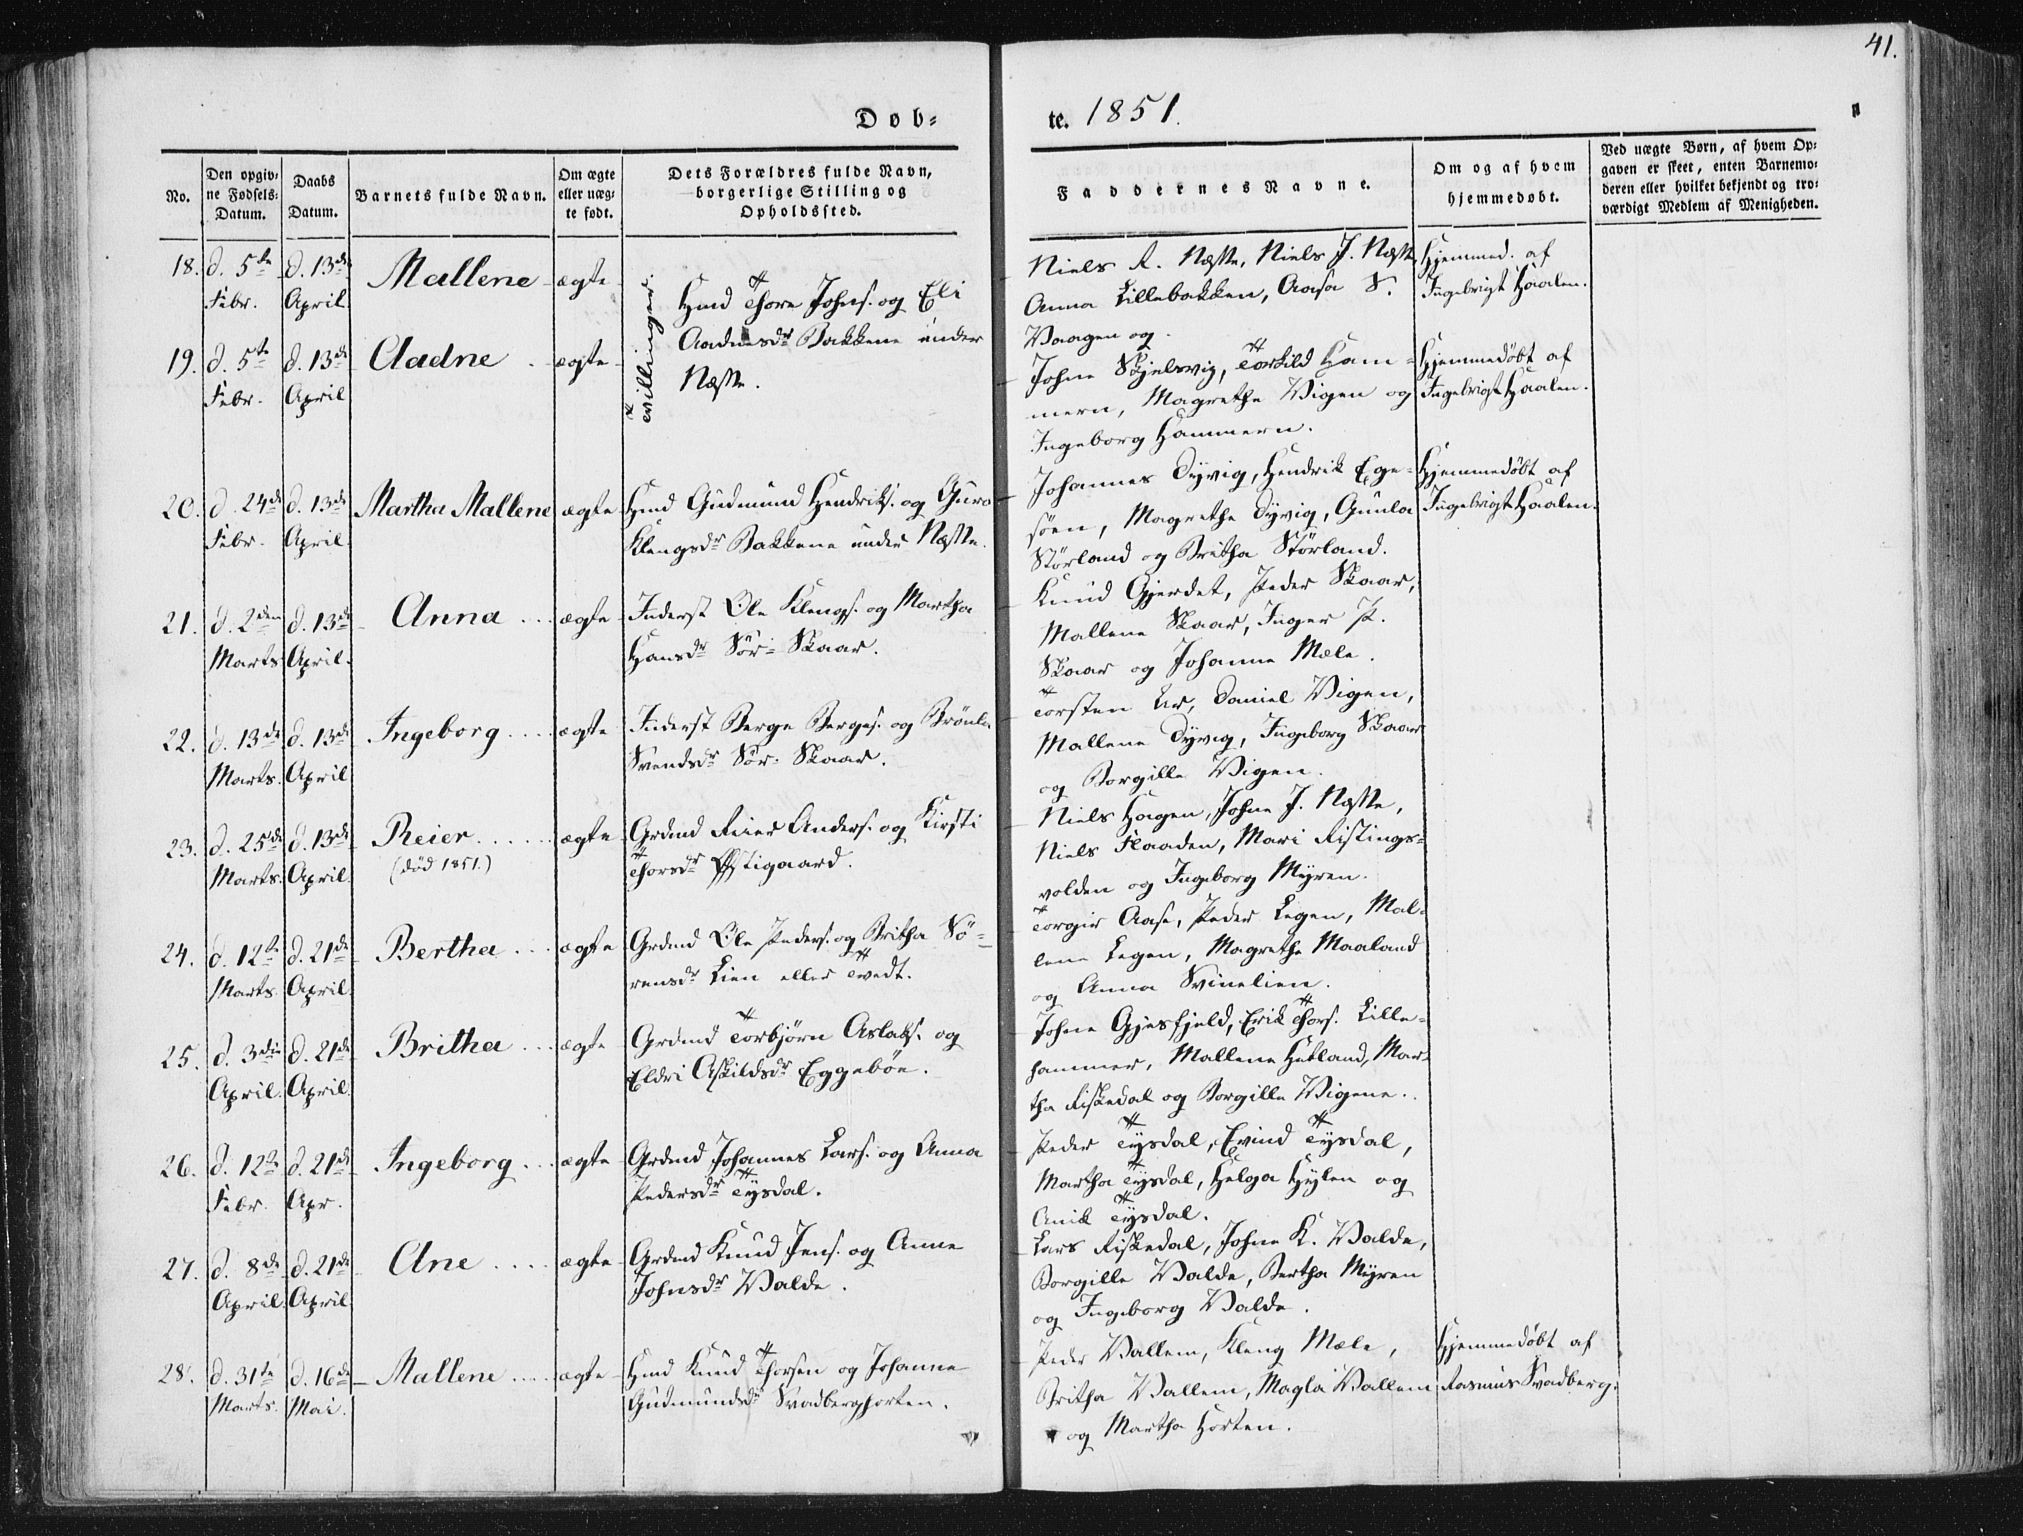 41.
Døb=
te. 1851.
No.
Den opgiv=
ne Fødsels=
Datum.
Daabs
Datum.
Barnets fulde Navn.
Om ægte
eller uæg=
te født.
Dets Forældres fulde Navn,
borgerlige Stilling og
Opholdssted.
Faddernes Navne.
Om og af hvem
hjemmedøbt.
Ved uægte Børn, af hvem Op=
gaven er skeet, enten Barnemo=
deren eller hvilket bekjendt og tro=
værdigt Medlem af Menigheden.
18. d. 5te Febr. d. 13de April Mallene ægte
Tvillinger.
Hmd Thore Johns. og Eli
Aadnesdr Bakkene under
Næsse.
Niels R. Næsse, Niels J. Næsse,
Anna Lillebakken, Aasa S.
Vaagen og
Hjemmed. af
Ingebrigt Haalen.
19. d. 5te Febr. d. 13de April Aadne ægte
Johne Skjelsvig, Torkild Ham=
mern, Magrethe Vigen og
Ingeborg Hammern.
Hjemmedøbt af
Ingebrigt Haalen.
20. d. 24de Febr. d. 13de April. Martha Mallene ægte
Hmd Gudmund Hendriks. og Guro
Klengsdr Bakkene under Næsse.
Johannes Dyvig, Hendrik Ege=
søen, Magrethe Dyvig, Gunla
Størland og Britha Størland.
Hjemmedøbt af
Ingebrigt Haalen.
21. d. 2den Marts d. 13de April. Anna ægte
Inderst Ole Klengs. og Martha
Hansdr Sør=Skaar.
Knud Gjerdet, Peder Skaar,
Mallene Skaar, Inger P.
Skaar og Johanne Mæle.
22. d. 13de Marts. d. 13de April Ingeborg ægte
Inderst Berge Berges. og Brønla
Svendsdr Sør=Skaar.
Torsten Ur, Daniel Vigen,
Mallene Dyvig, Ingeborg Skaar
og Borgille Vigen.
23. d. 25de Marts. d. 13de April. Reier ægte
(død 1851.)
Grdmd Reier Anders. og Kirsti
Thorsdr Østigaard.
Niels Hagen, Johne J. Næsse,
Niels Flaaden, Mari Ristings=
volden og Ingeborg Myren.
24. d. 12te Marts. d. 21de April. Bertha ægte
Grdmd Ole Peders. og Britha Sø=
rensdr Lien eller Tvedt.
Torgir Aase, Peder Legen, Mal=
lene Legen, Magrethe Maaland
og Anna Svinelien.
25. d. 3die April. d. 21de April. Britha ægte
Grdmd Torbjørn Aslaks. og
Eldri Askildsdr Eggebøe.
Johne Gjesfjeld, Erik Thors. Lille=
hammer, Mallene Hetland, Mar=
tha Riskedal og Borgille Vigene.
26. d. 12te Febr. d. 21de Apr. Ingeborg ægte
Grdmd Johannes Lars. og Anna
Pedersdr Tysdal.
Peder Tysdal, Evind Tysdal,
Martha Tysdal, Helga Hylen og
Anik Tysdal.
27. d. 8de April. d. 21de April. Ane ægte
Grdmd Knud Jens. og Anne
Johnsdr Valde.
Lars Riskedal, Johne K. Valde,
Borgille Valde, Bertha Myren
og Ingeborg Valde.
28. d. 31te Marts. d. 16de Mai. Mallene ægte
Hmd Knud Thorsen og Johanne
Gudmundsdr Svadberghorten.
Peder Vallem, Kleng Mæle,
Britha Vallem, Magla Vallem
og Martha Horten.
Hjemmedøbt af
Rasmus Svadberg.